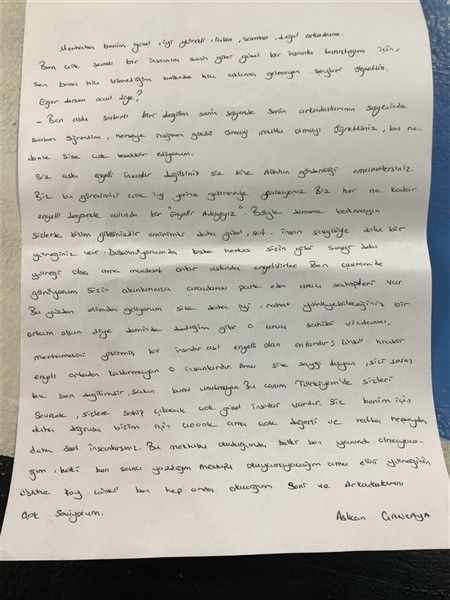 Merhaba benim güzel, iyi yürekli, , samimi, doğal arkadaşım.
Ben çok şanslı bir insanım senin gibi güzel bir insanla tanıştığım için,
Sen bana hiç bilmediğim hiç aklıma gelmeyen şeyleri öğrettin.
Eğer dersen nasıl diye?
- Ben asla sabırlı biri değildim senin sayende senin arkadaşlarının sayesinde
sabrı öğrendim, herşeye rağmen olmayı mutlu olmayı öğrettiniz, bu ne-
denle size çok teşekkür ediyorum.
Siz asla engelli insanlar değilsiniz siz bize Allahın gönderdiği emanetlersiniz.
Biz bu görevimizi çok iyi yerine getirmeye çalışıyoruz Biz her ne kadar
engelli değilsek aslında bir "Engelli Adayıyız". Böyle dememe bakmayın
sizlerle bizim eminimki daha güzel, saf, insan sevgisiyle dolu bir
yüreğiniz var. başka herkes sizin gibi sevgi dolu
yüreği olsa ama maalesef onlar aslında engelliler Ben çevremde
görüyorum sizin alanlarınıza araçlarını park eden araç sahipleri var.
Bu yüzden size daha iyi, rahat yürüyebileceğiniz bir
ortam olsun diye deminde dediğim gibi o araç sahibi vicdanını,
merhametini yitirmiş bir insandır asıl engelli olan onlardır çünkü
engeli ortadan kaldırmayan o insanlardır. Ama size saygı duyan, sizi seven
tek ben değilimdir, sakın bunu unutmayın. Bu canım Türkiyem'de sizleri
Sevecek, sizlere sahip çıkacak çok güzel insanlar vardır. Siz benim için
daha doğrusu bizim için çoook ama çok değerli ve
daha özel insanlarsınız. Bu mektubu okuduğunda, belki ben yanında olmayaca-
ğım, belki ben sana yazdığım mektubu okuyamayacağım ama elini yüreğinin
üstüne koy çünkü ben hep orda olacağım. Seni ve Arkadaşlarını
Çok Seviyorum.
Aslıcan ÇANKAYA